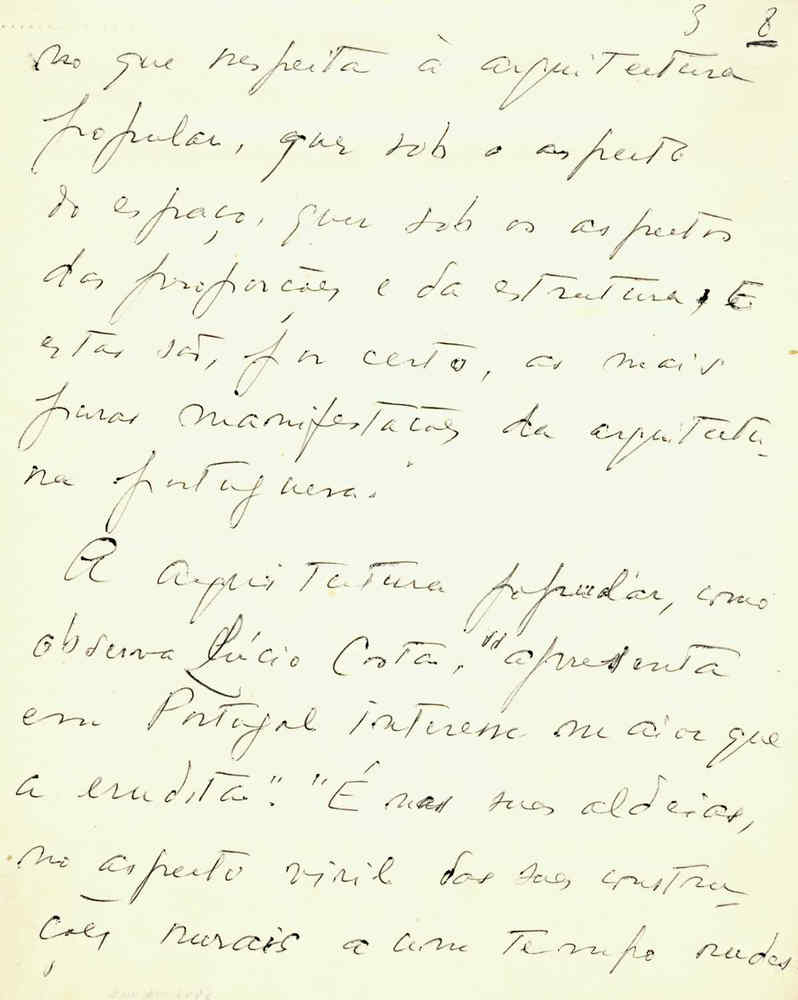 3 8
no que respeita à arquitectura
popular, quer sob o aspecto
do espaço, quer sob os aspectos
das proporções e da estrutura, E
estas são, por certo, as mais
puras manifestações da arquitectu-
ra portuguesa."
A arquitectura popular, como
observa Lúcio Costa, "apresenta
em Portugal interesse maior que
a erudita". "É nas suas aldeias,
no aspecto viril das suas constru-
ções rurais a um tempo rudes